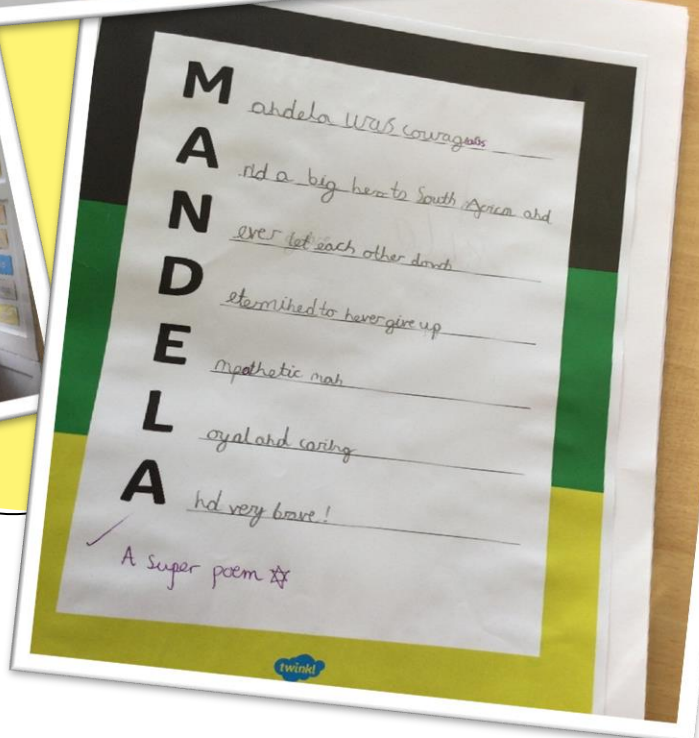 Mandela was courageous
And a big hero to South Africa and
Never let each other down
Determined to never give up
Empathetic man
Loyal and caring
And very brave!
A super poem
twinkl